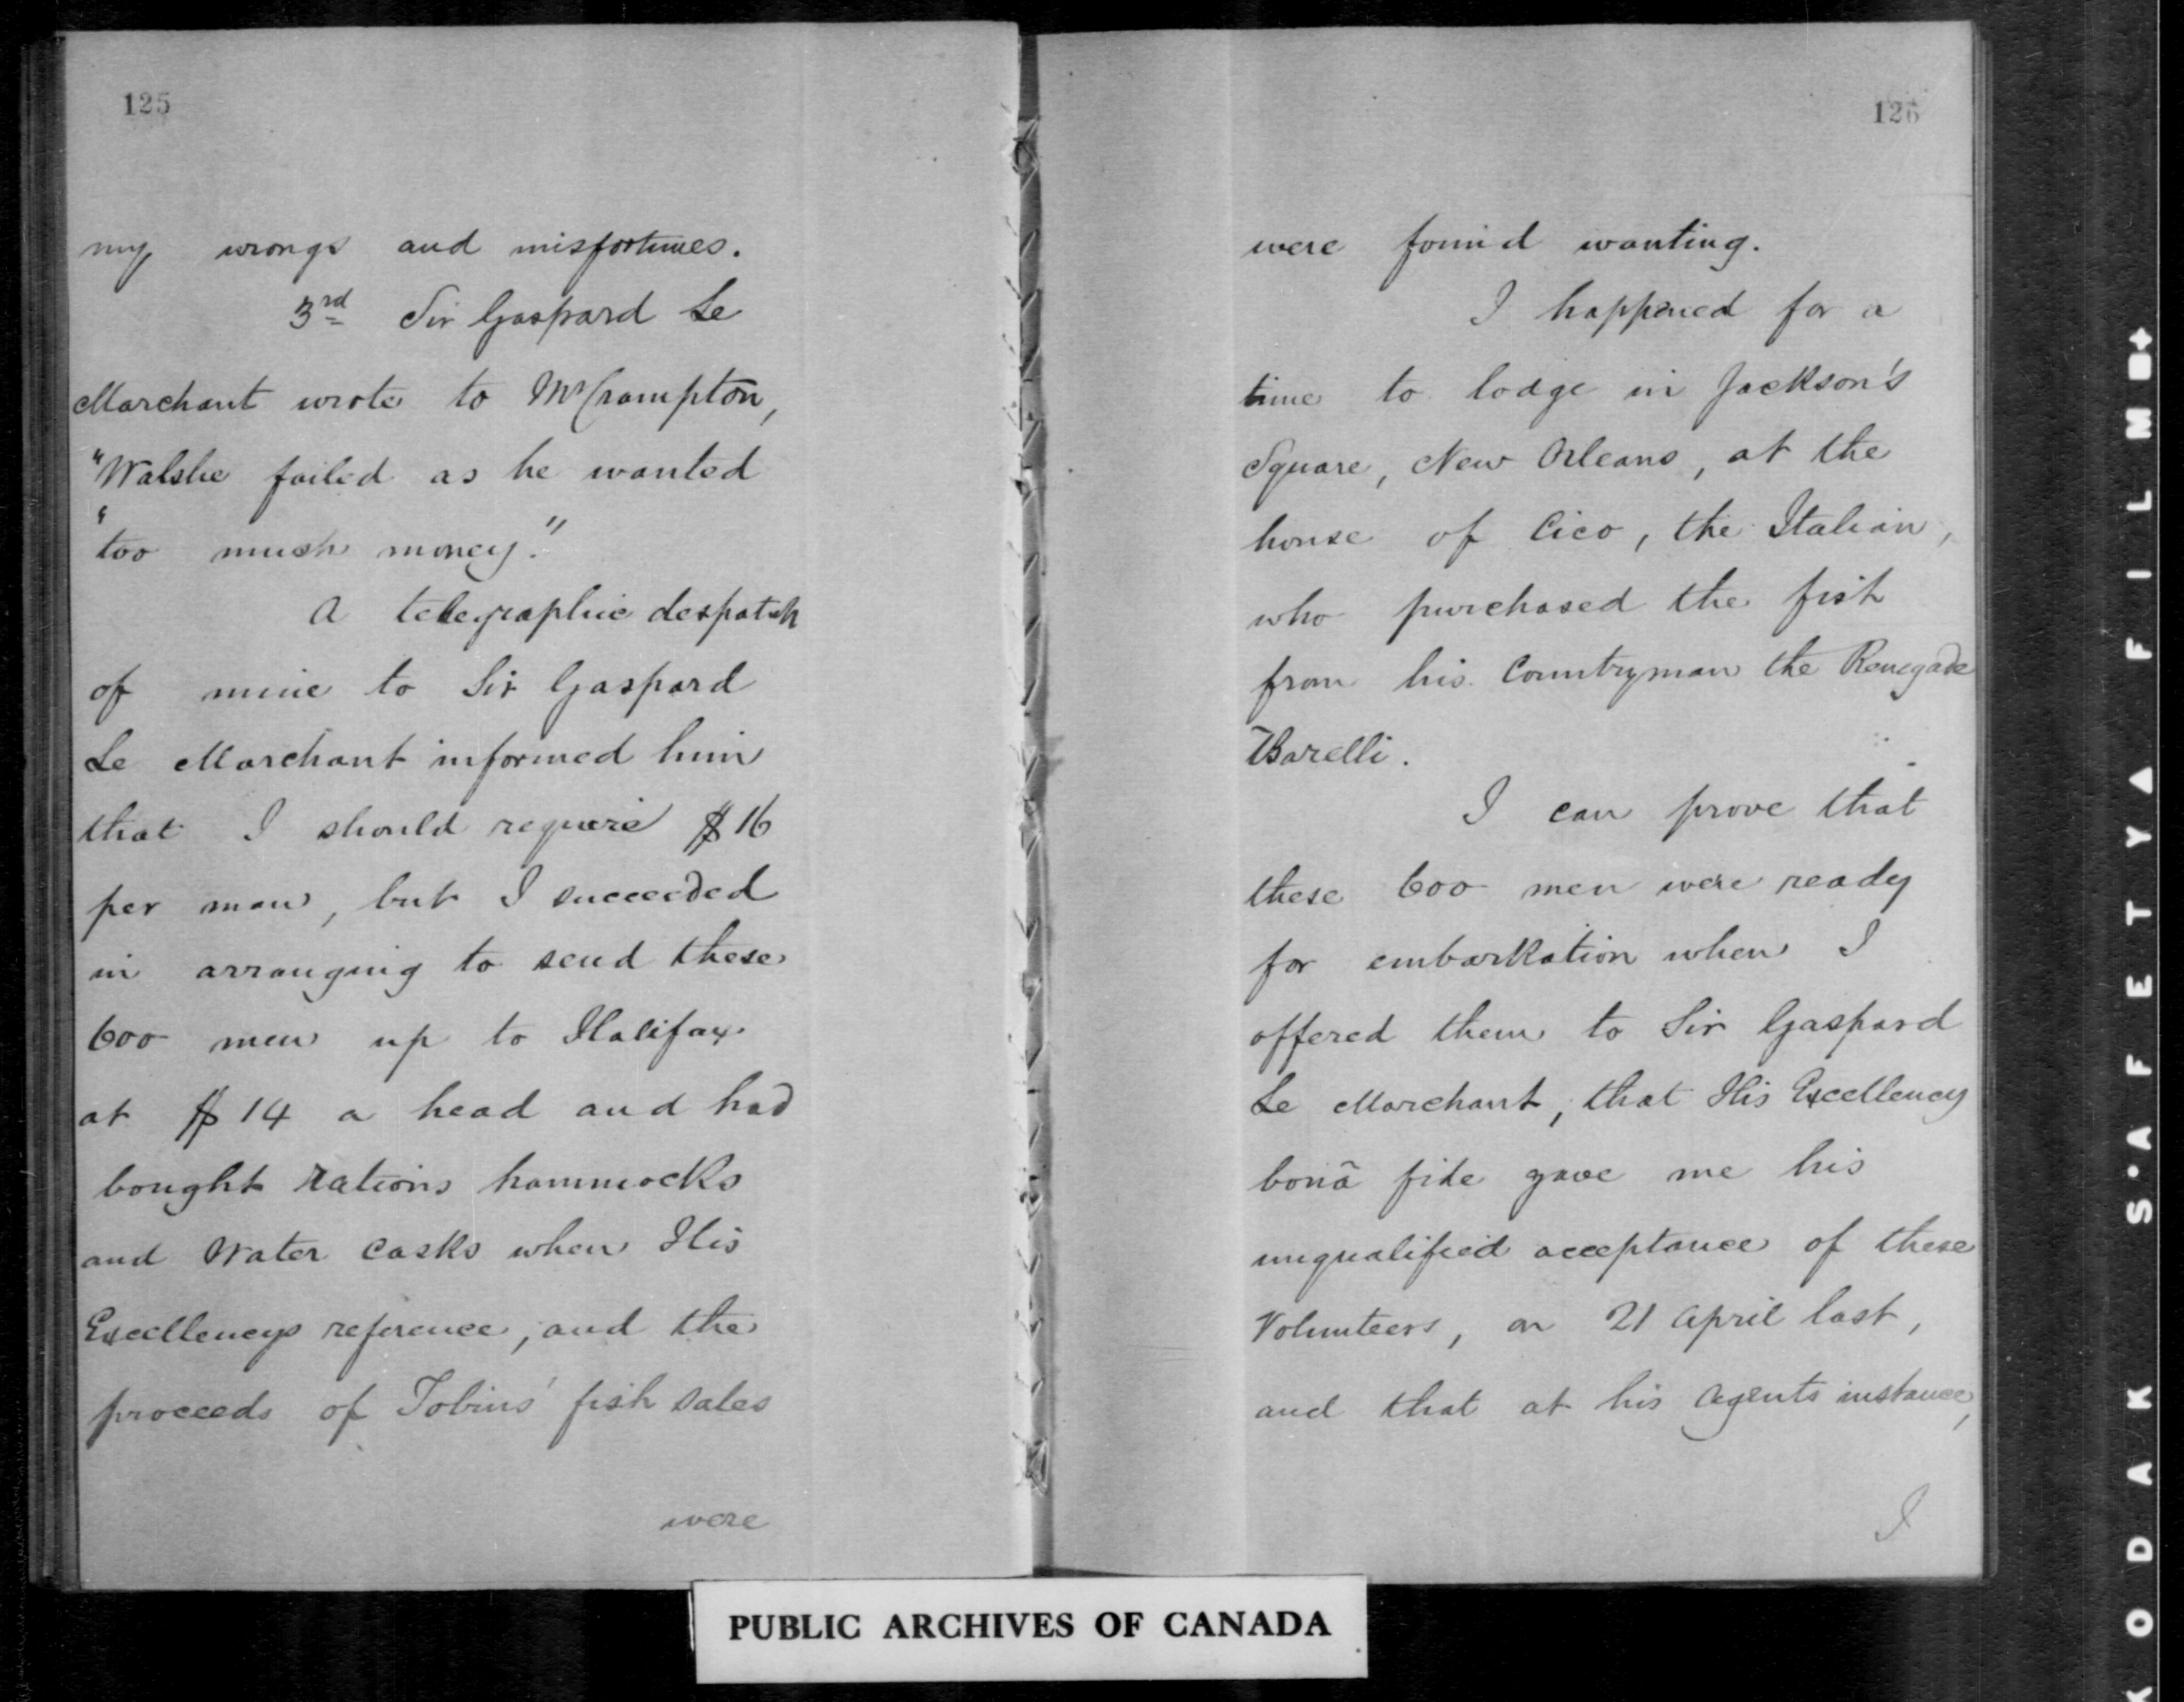 125
my wrongs and misfortunes.
3rd Sir Gaspard Le
Marchant wrote to Mr Crampton,
"Walshe failed as he wanted
"too much money."
A telegraphic despatch
of mine to Sir Gaspard
Le Marchant informed him
that I should require $16
per man, but I succeeded
in arranging to send these
600 men up to Halifax
at $14 a head and had
bought rations hammocks
and Water Casks when His
Excellencys reference, and the
proceeds of Tobins' fish sales
were
126
were found wanting.
I happened for a
time to lodge in Jackson's
Square, New Orleans, at the
house of Cico, the Italian,
who purchased the fish
from his Countryman the Renegade
Barelli.
I can prove that
these 600 men were ready
for embarkation when I
offered them to Sir Gaspard
Le Marchant, that His Excellency
bonâ fide gave me his
unqualified acceptance of these
Volunteers, on 21 April last,
and that at his Agents instance,
I
PUBLIC ARCHIVES OF CANADA
KODAK S'AFETY▲ FILM